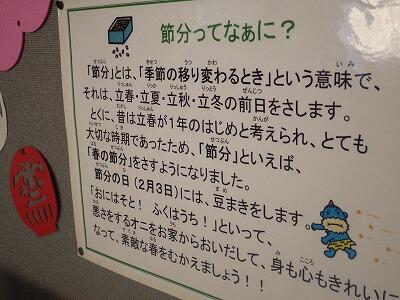 節分ってなぁに？
「節分」とは、「季節の移り変わるとき」という意味で、
それは、立春・立夏・立秋・立冬の前日をさします。
とくに、昔は立春が1年のはじめと考えられ、とても
大切な時期であったため、「節分」といえば、
「春の節分」をさすようになりました。
節分の日（2月3日）には、豆まきをします。
「おにはそと！ ふくはうち！」といって、
悪さをするオニをお家からおいだして、身も心もきれいに
なって、素敵な春をむかえましょう！！